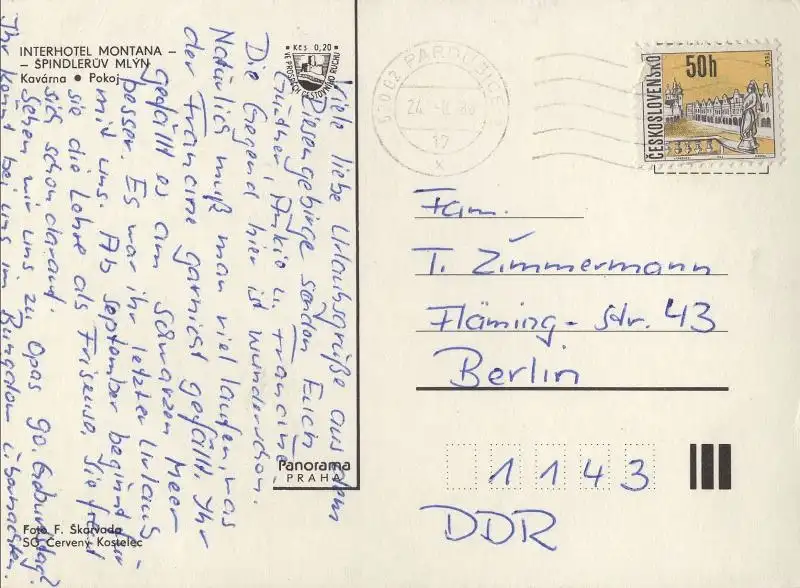 INTERHOTEL MONTANA –
– ŠPINDLERŮV MLÝN
Kavárna ● Pokoj
Kčs 0,20
VE PROSPĚCH CESTOVNÍHO RUCHU
Viele liebe Urlaubsgrüße aus dem
Riesengebirge senden Euch
Gunther, Ankie u. Francine,
Die Gegend hier ist wunderschön.
Natürlich muß man viel laufen, was
der Francine garnicht gefällt. Ihr
gefällt es am Schwarzen Meer
besser. Es war ihr letzter Urlaub
mit uns. Ab September beginnt für
sie die Lehre als Friseuse. Sie freut
sich schon darauf.
Sehen wir uns zu Opas 90. Geburtstag?
Ihr könnt bei uns im Bungalow übernachten.
Foto F. Škarvada
SG Červený Kostelec
Panorama
PRAHA
PARDUBICE
17
x
ČESKOSLOVENSKO
50h
TELČ
Fam.
T. Zimmermann
Fläming-Str. 43
Berlin
1143
DDR